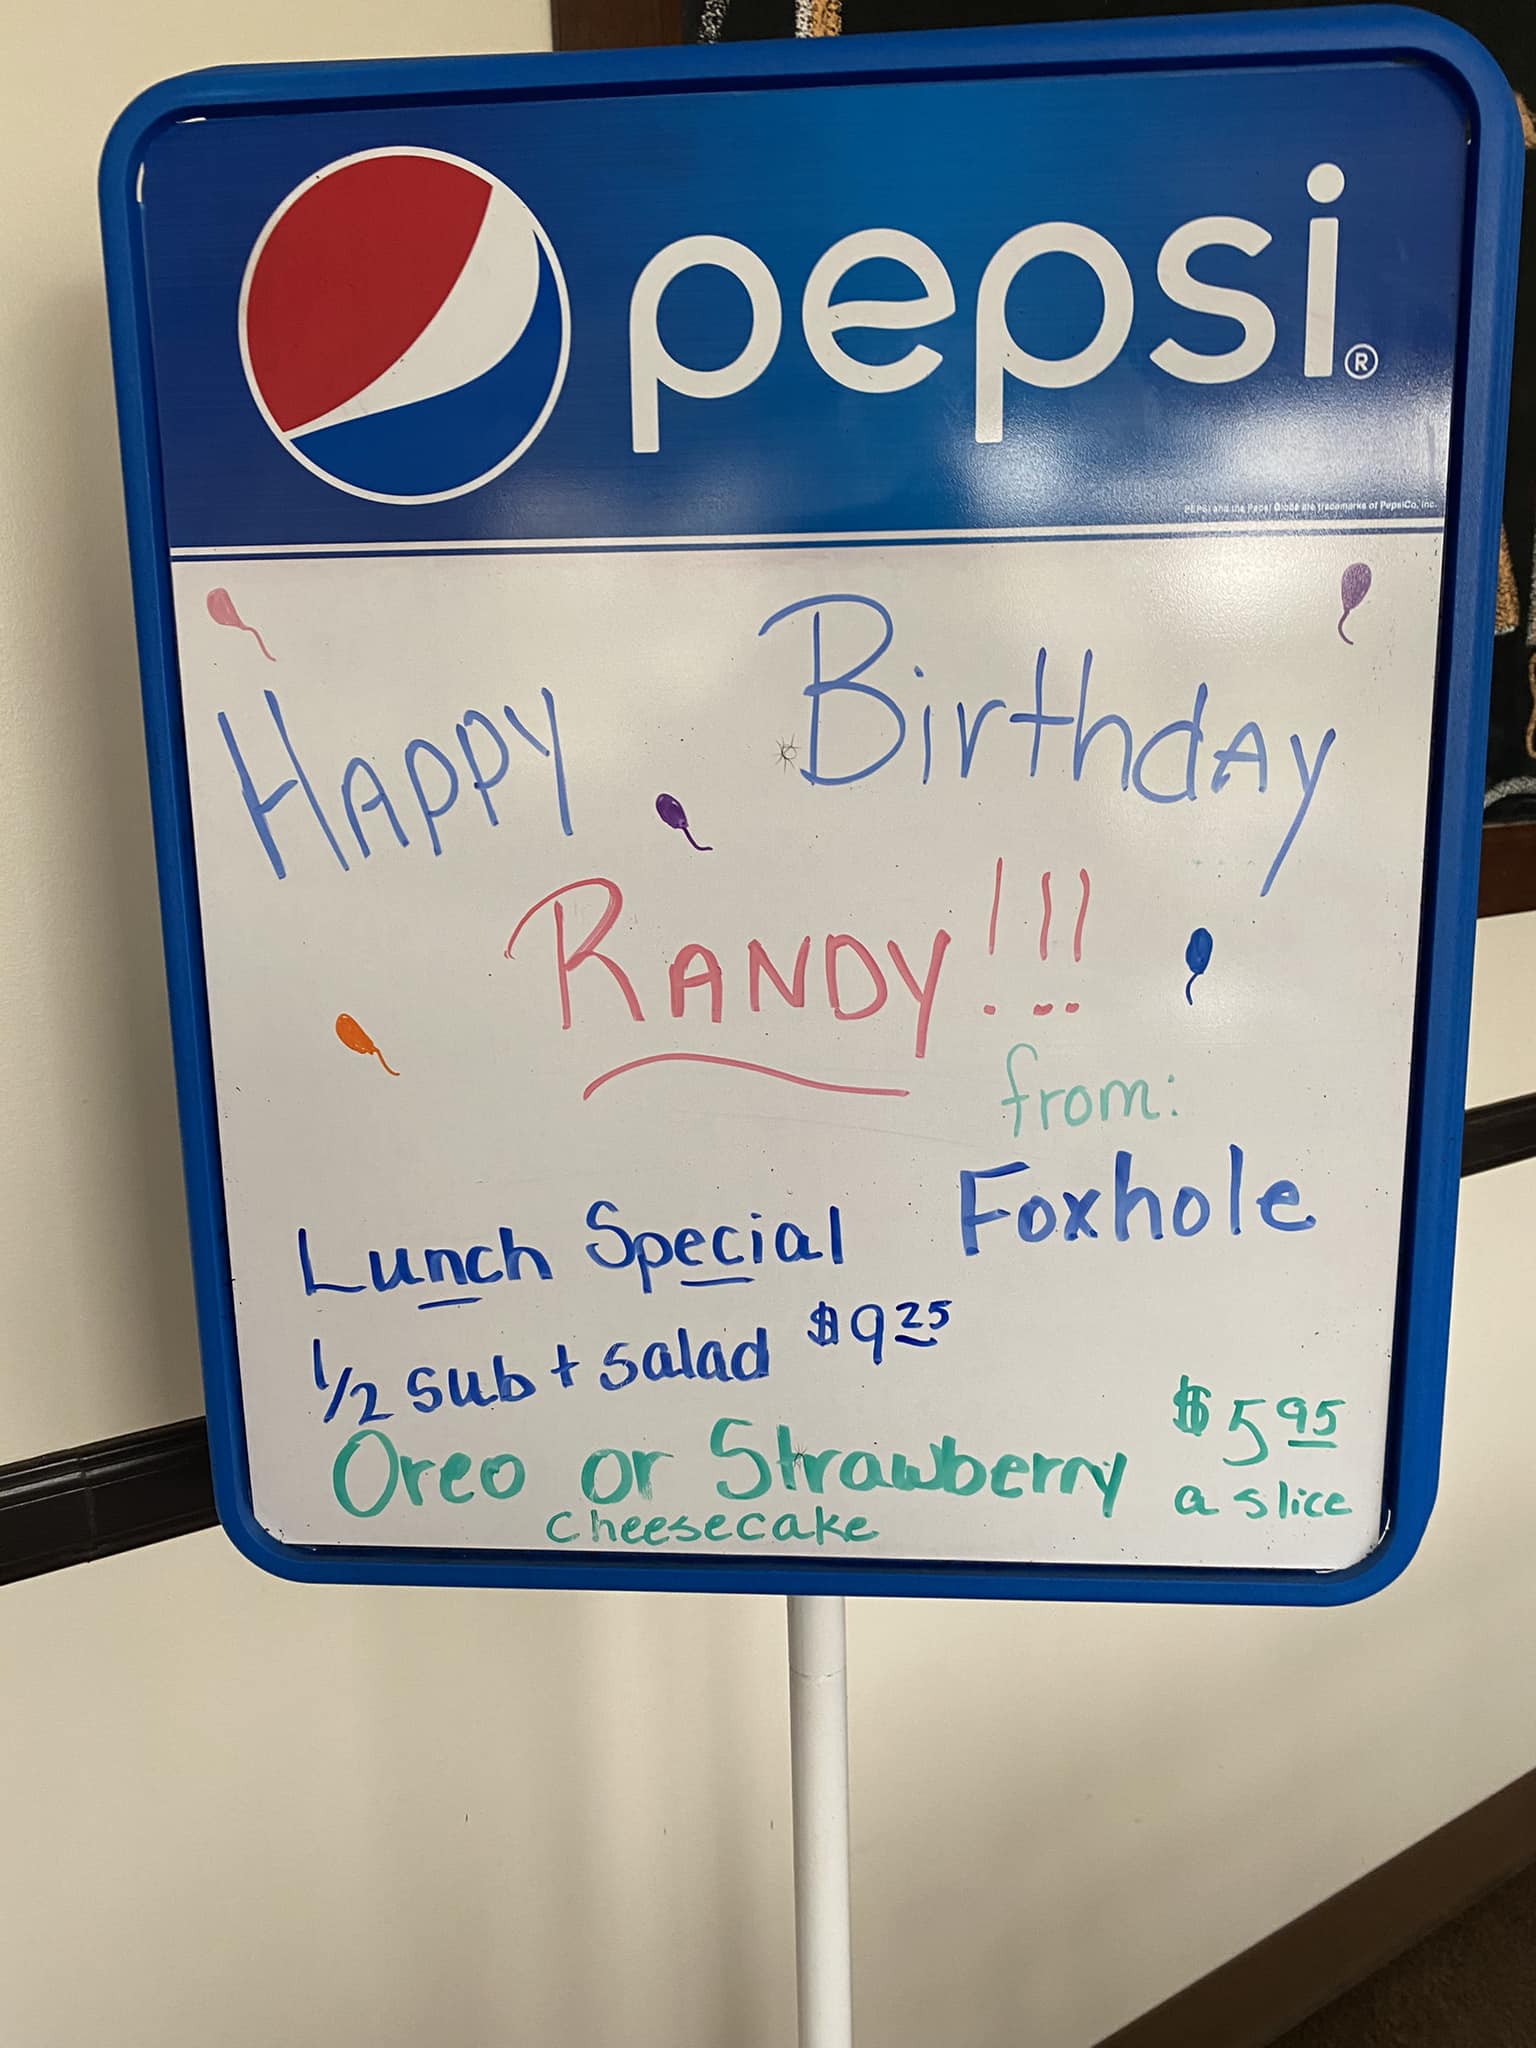 pepsi®
PEPSI and the Pepsi Globe are trademarks of PepsiCo, Inc.
Happy Birthday
RANDY!!!
from:
Foxhole
Lunch Special
1/2 sub + salad $9.25
Oreo or Strawberry
cheesecake
$5.95
a slice